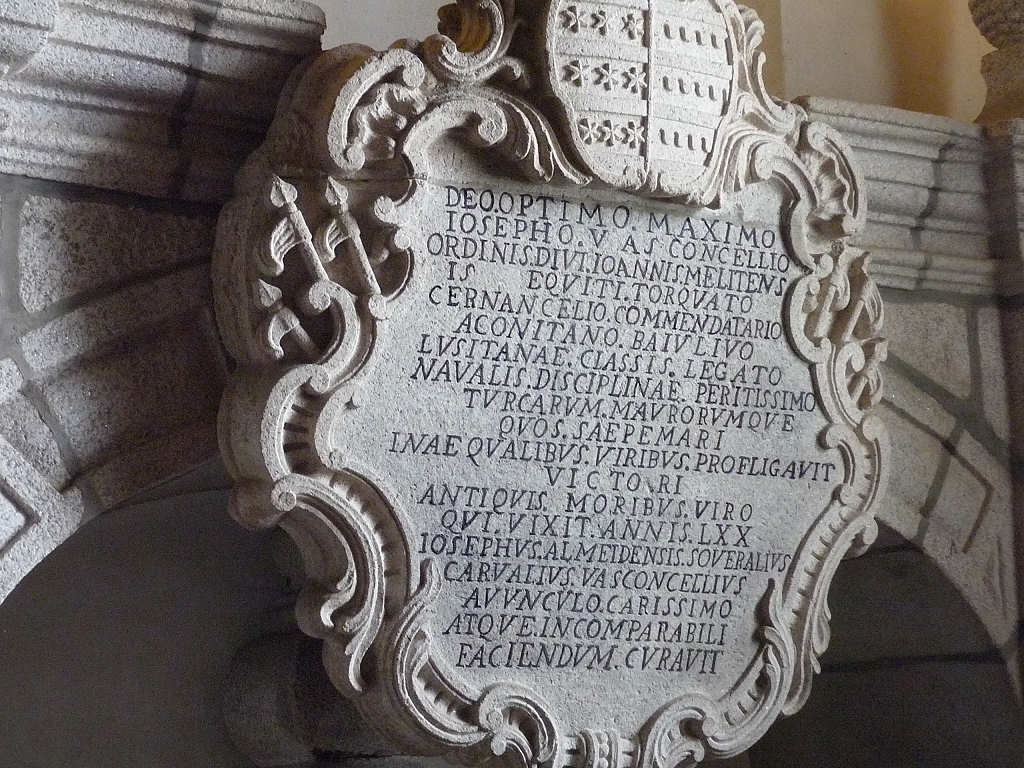 DEO.OPTIMO.MAXIMO
IOSEPHO.VASCONCELLIO
ORDINIS.DIVI.IOANNIS.MELITENS
IS EQVITI.TORQVATO
CERNANCELIO.COMMENDATARIO
ACONITANO.BAIVLIVO
LVSITANAE.CLASSIS.LEGATO
NAVALIS.DISCIPLINAE.PERITISSIMO
TVRCARVM.MAVRORVMQVE
QVOS.SAEPEMARI
INAEQVALIBVS.VIRIBVS.PROFLIGAVIT
VICTORI
ANTIQVIS.MORIBVS.VIRO
QVI.VIXIT.ANNIS.LXX
IOSEPHVS.ALMEIDENSIS.SOVERALIVS
CARVALIVS.VASCONCELLIVS
AVVNCVLO.CARISSIMO
ATQVE.INCOMPARABILI
FACIENDVM.CVRAVIT